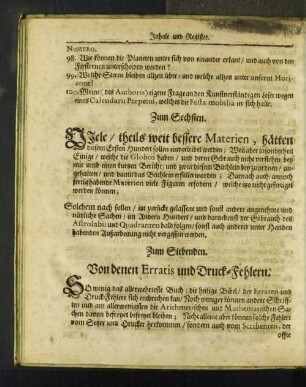 Inhalt und Register.
NUMERO.
98. Wie können die Planeten unter sich von einander erkant / und auch von den
Fixsternen unterschieden werden?
99. Welche Stern bleiben allzeit über / und welche allzeit unter unserm Hori-
zont?
100. Meine (des Authoris) eigene Frage an den Kunstverständigen Leser wegen
eines Calendarii Perpetui, welches die Festa mobilia in sich halte.
Zum Sechsten.
VIele / theils weit bessere Materien / hätten
diesem Ersten Hundert sollen einverleibt werden; Weil aber
Einige / welche die Globos haben / und deren Gebrauch nicht verstehen bey
mir umb einen kurtzen Bericht / und zwar diesem Büchlein bey zuordnen / an-
gehalten / und damit das Büchlein erfüllet worden; Darnach auch annoch
fertig habende Materien viele Figuren erfodern / welche itzo nicht gefertiget
werden können;
Solchem nach sollen / die zurücke gelassene und sonst andere angenehme und
nützliche Sachen / im Andern Hundert / und darneben der Gebrauch des
Astrolabii und Quadranten bald folgen / sonst auch anderer unter Handen
habenden Außarbeitung nicht vergessen werden.
Zum Siebenden.
Von denen Erratis und Druck-Fehlern.
SO wenig das allercorrecteste Buch / die heilige Bibel / der Erraten und
Druck-Fehlern sich entbrechen kan / Noch weniger können andere Schriff-
ten und am allerwenigsten die Arithmetischen und Mathematischen Sa-
chen davon befreyet bleiben; Nicht alleine aber können solche Fehler
vom Setzer und Drucker herkommen / sondern auch vom Scribenten, der
offte